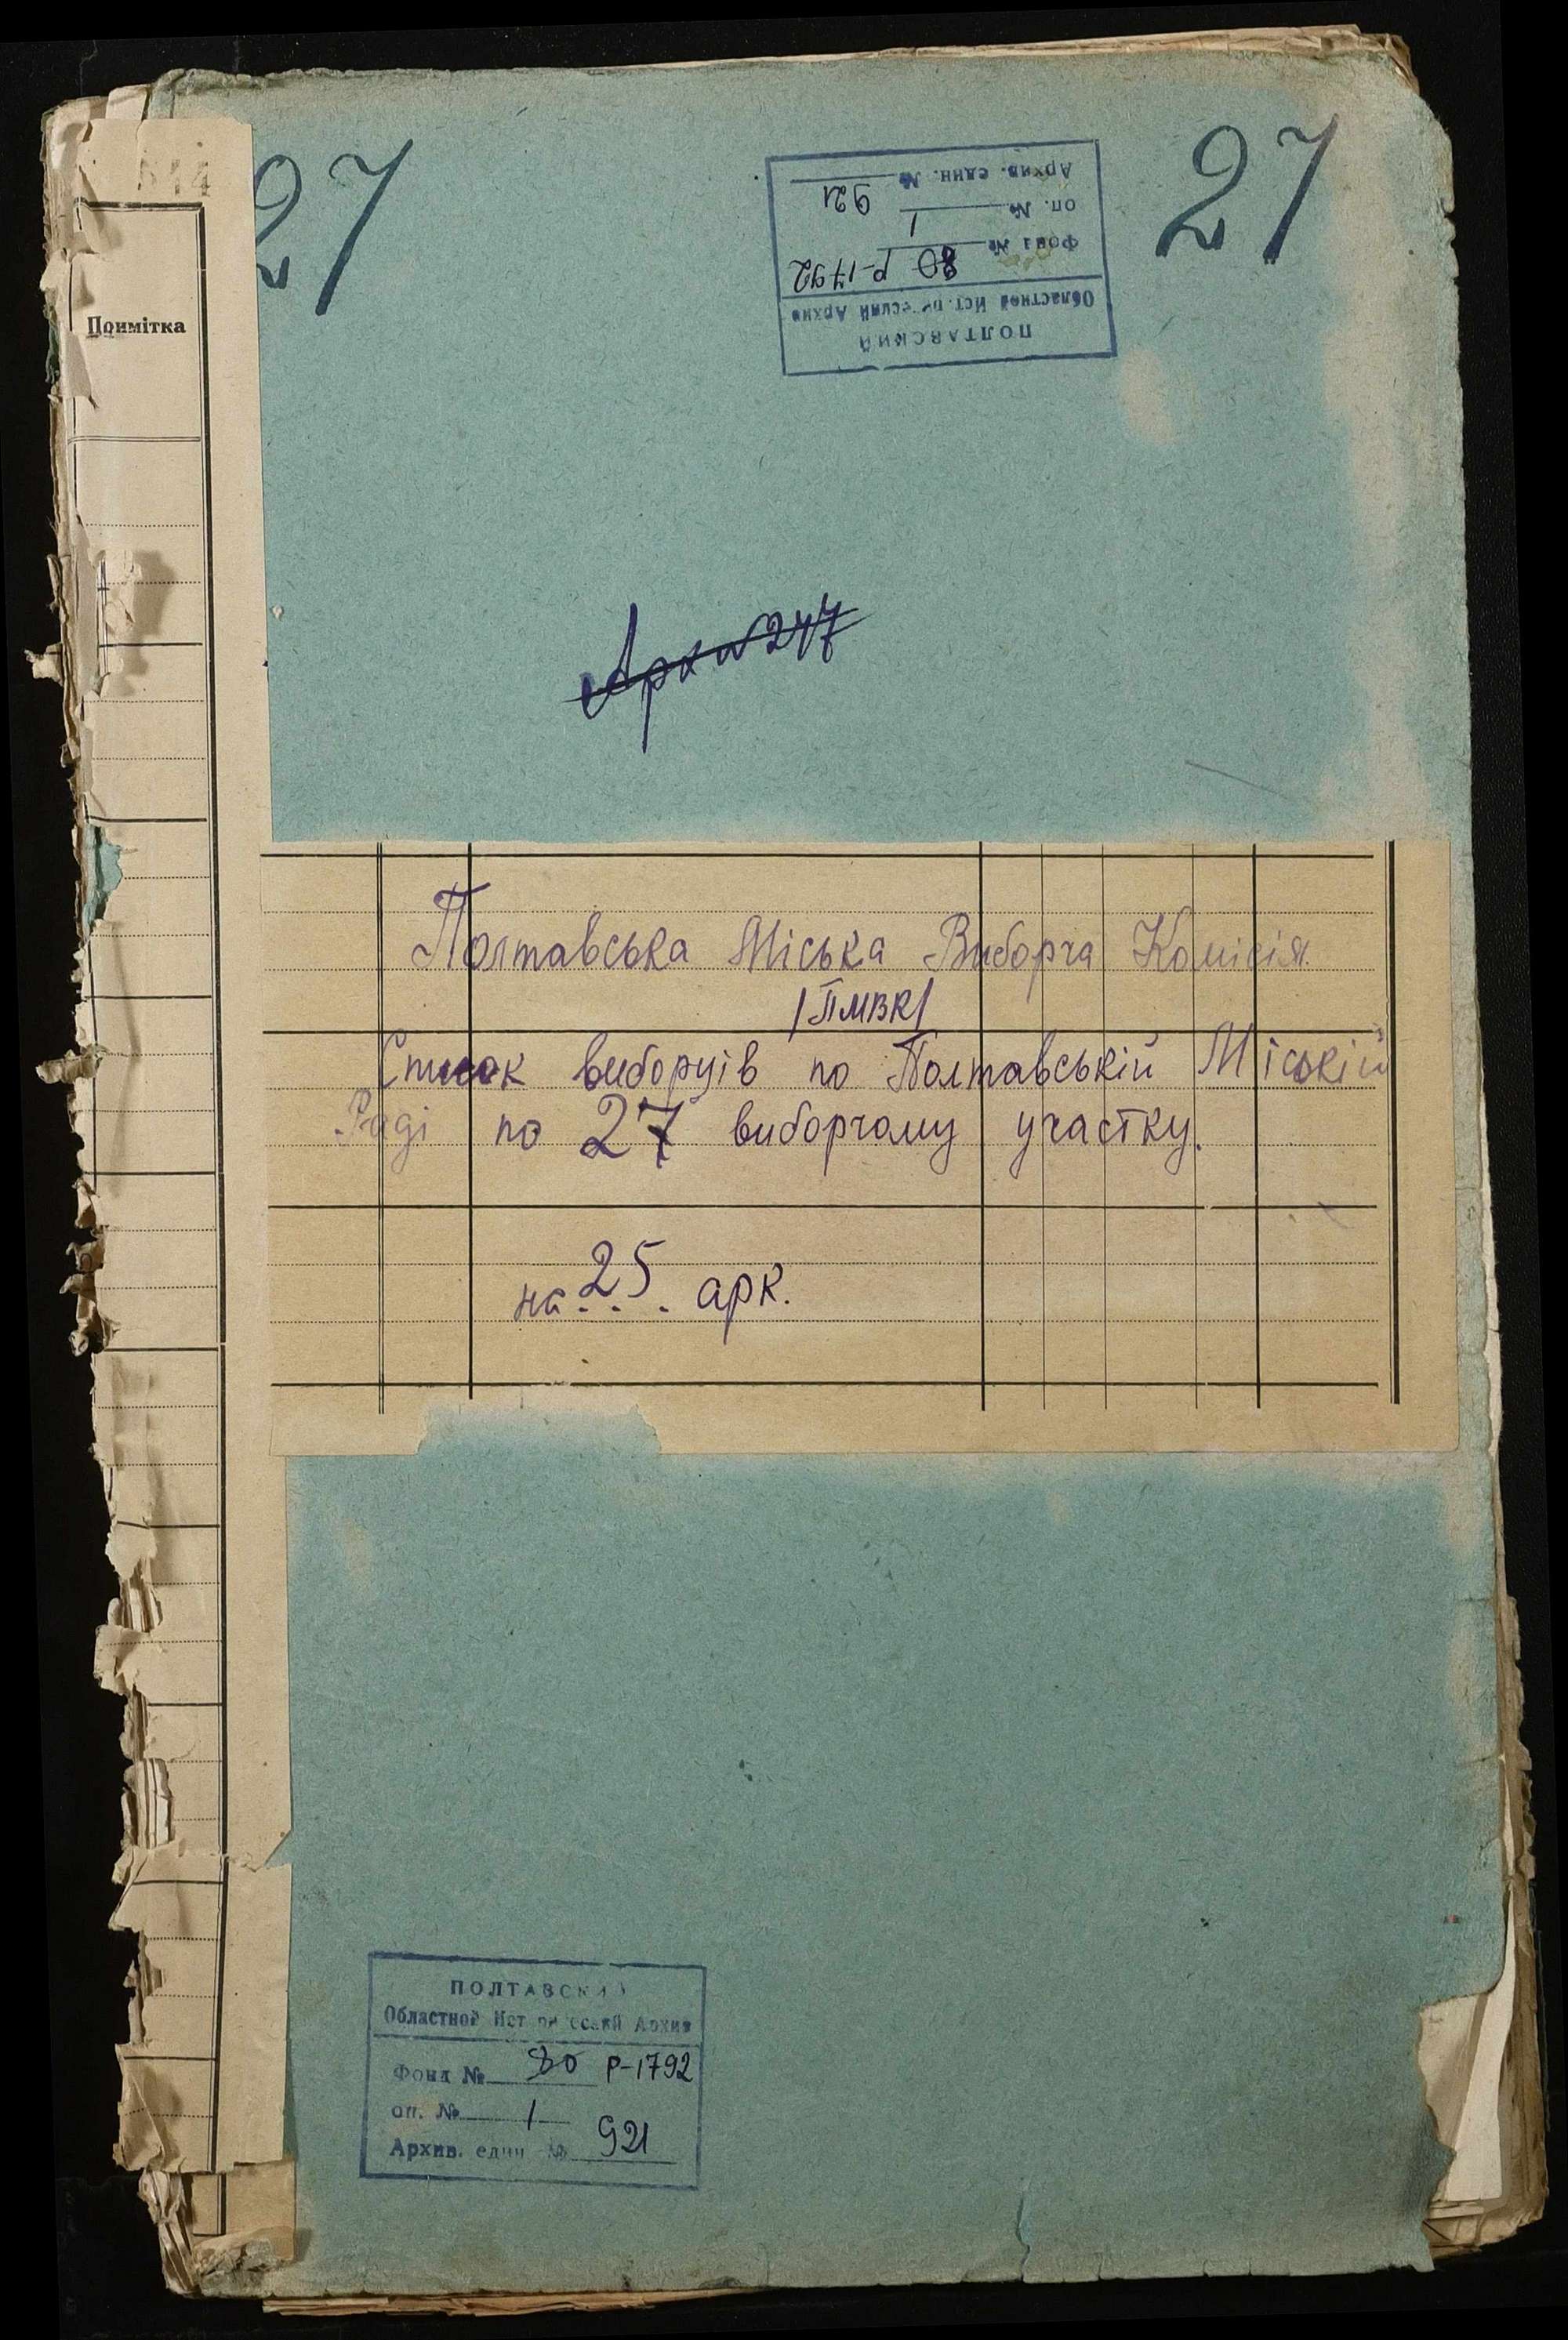 27
27
ПОЛТАВСКИЙ
Областной Исторический Архив
Фонд № 80 Р-1792
оп. № 1
Архив. един. № 921
Примітка
Полтавська Міська Виборча Комісія.
/ПМВК/
Список виборців по Полтавській Міській
Раді по 27 виборчому участку.
на 25 арк.
ПОЛТАВСКИЙ
Областной Исторический Архив
Фонд № 80 Р-1792
оп. № 1
Архив. един № 921